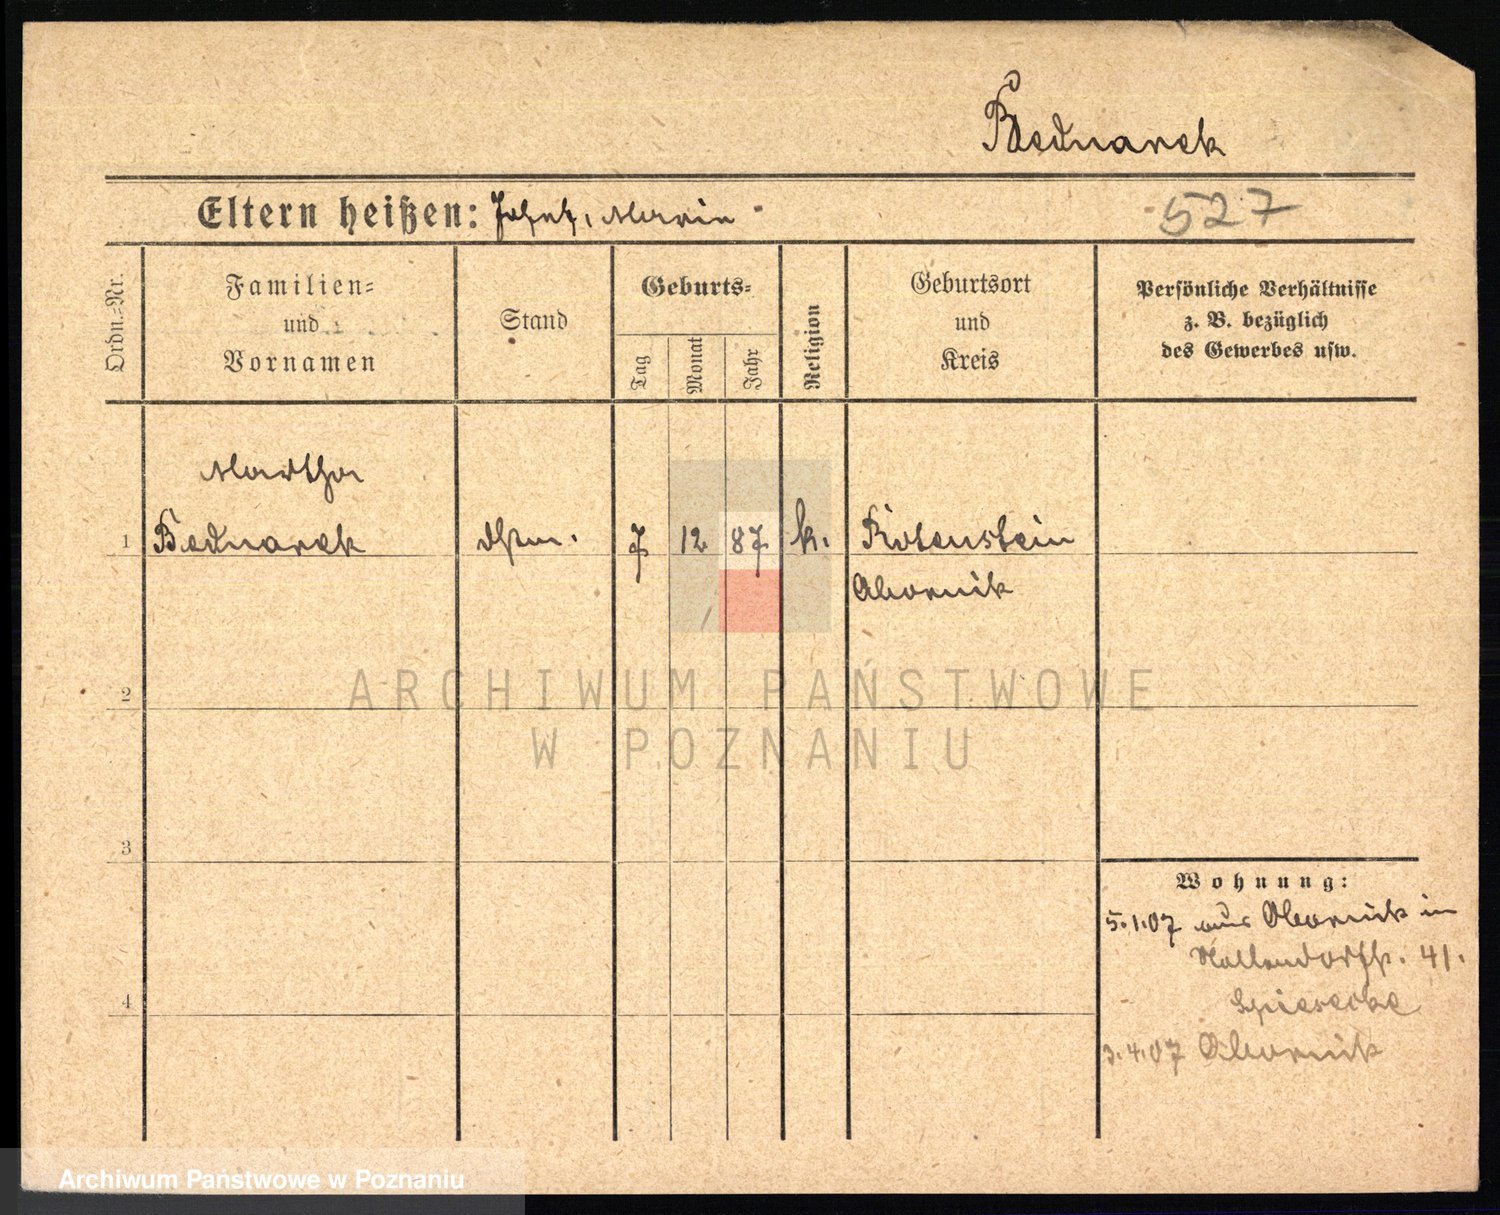 Bednarek
Eltern heißen: Josef, Maria
527
Ordn.-Nr.
Familien-
und
Vornamen
Stand
Geburts-
Tag
Monat
Jahr
Religion
Geburtsort
und
Kreis
Persönliche Verhältnisse
z. B. bezüglich
des Gewerbes usw.
Martha
1 Bednarek 7 12 87 k. Rotenstein
Obornik
2
3
4
Wohnung:
5.1.07 aus Obornik in
Nollendorfstr. 41.
3.4.07 Obornik
ARCHIWUM PAŃSTWOWE
W POZNANIU
Archiwum Państwowe w Poznaniu